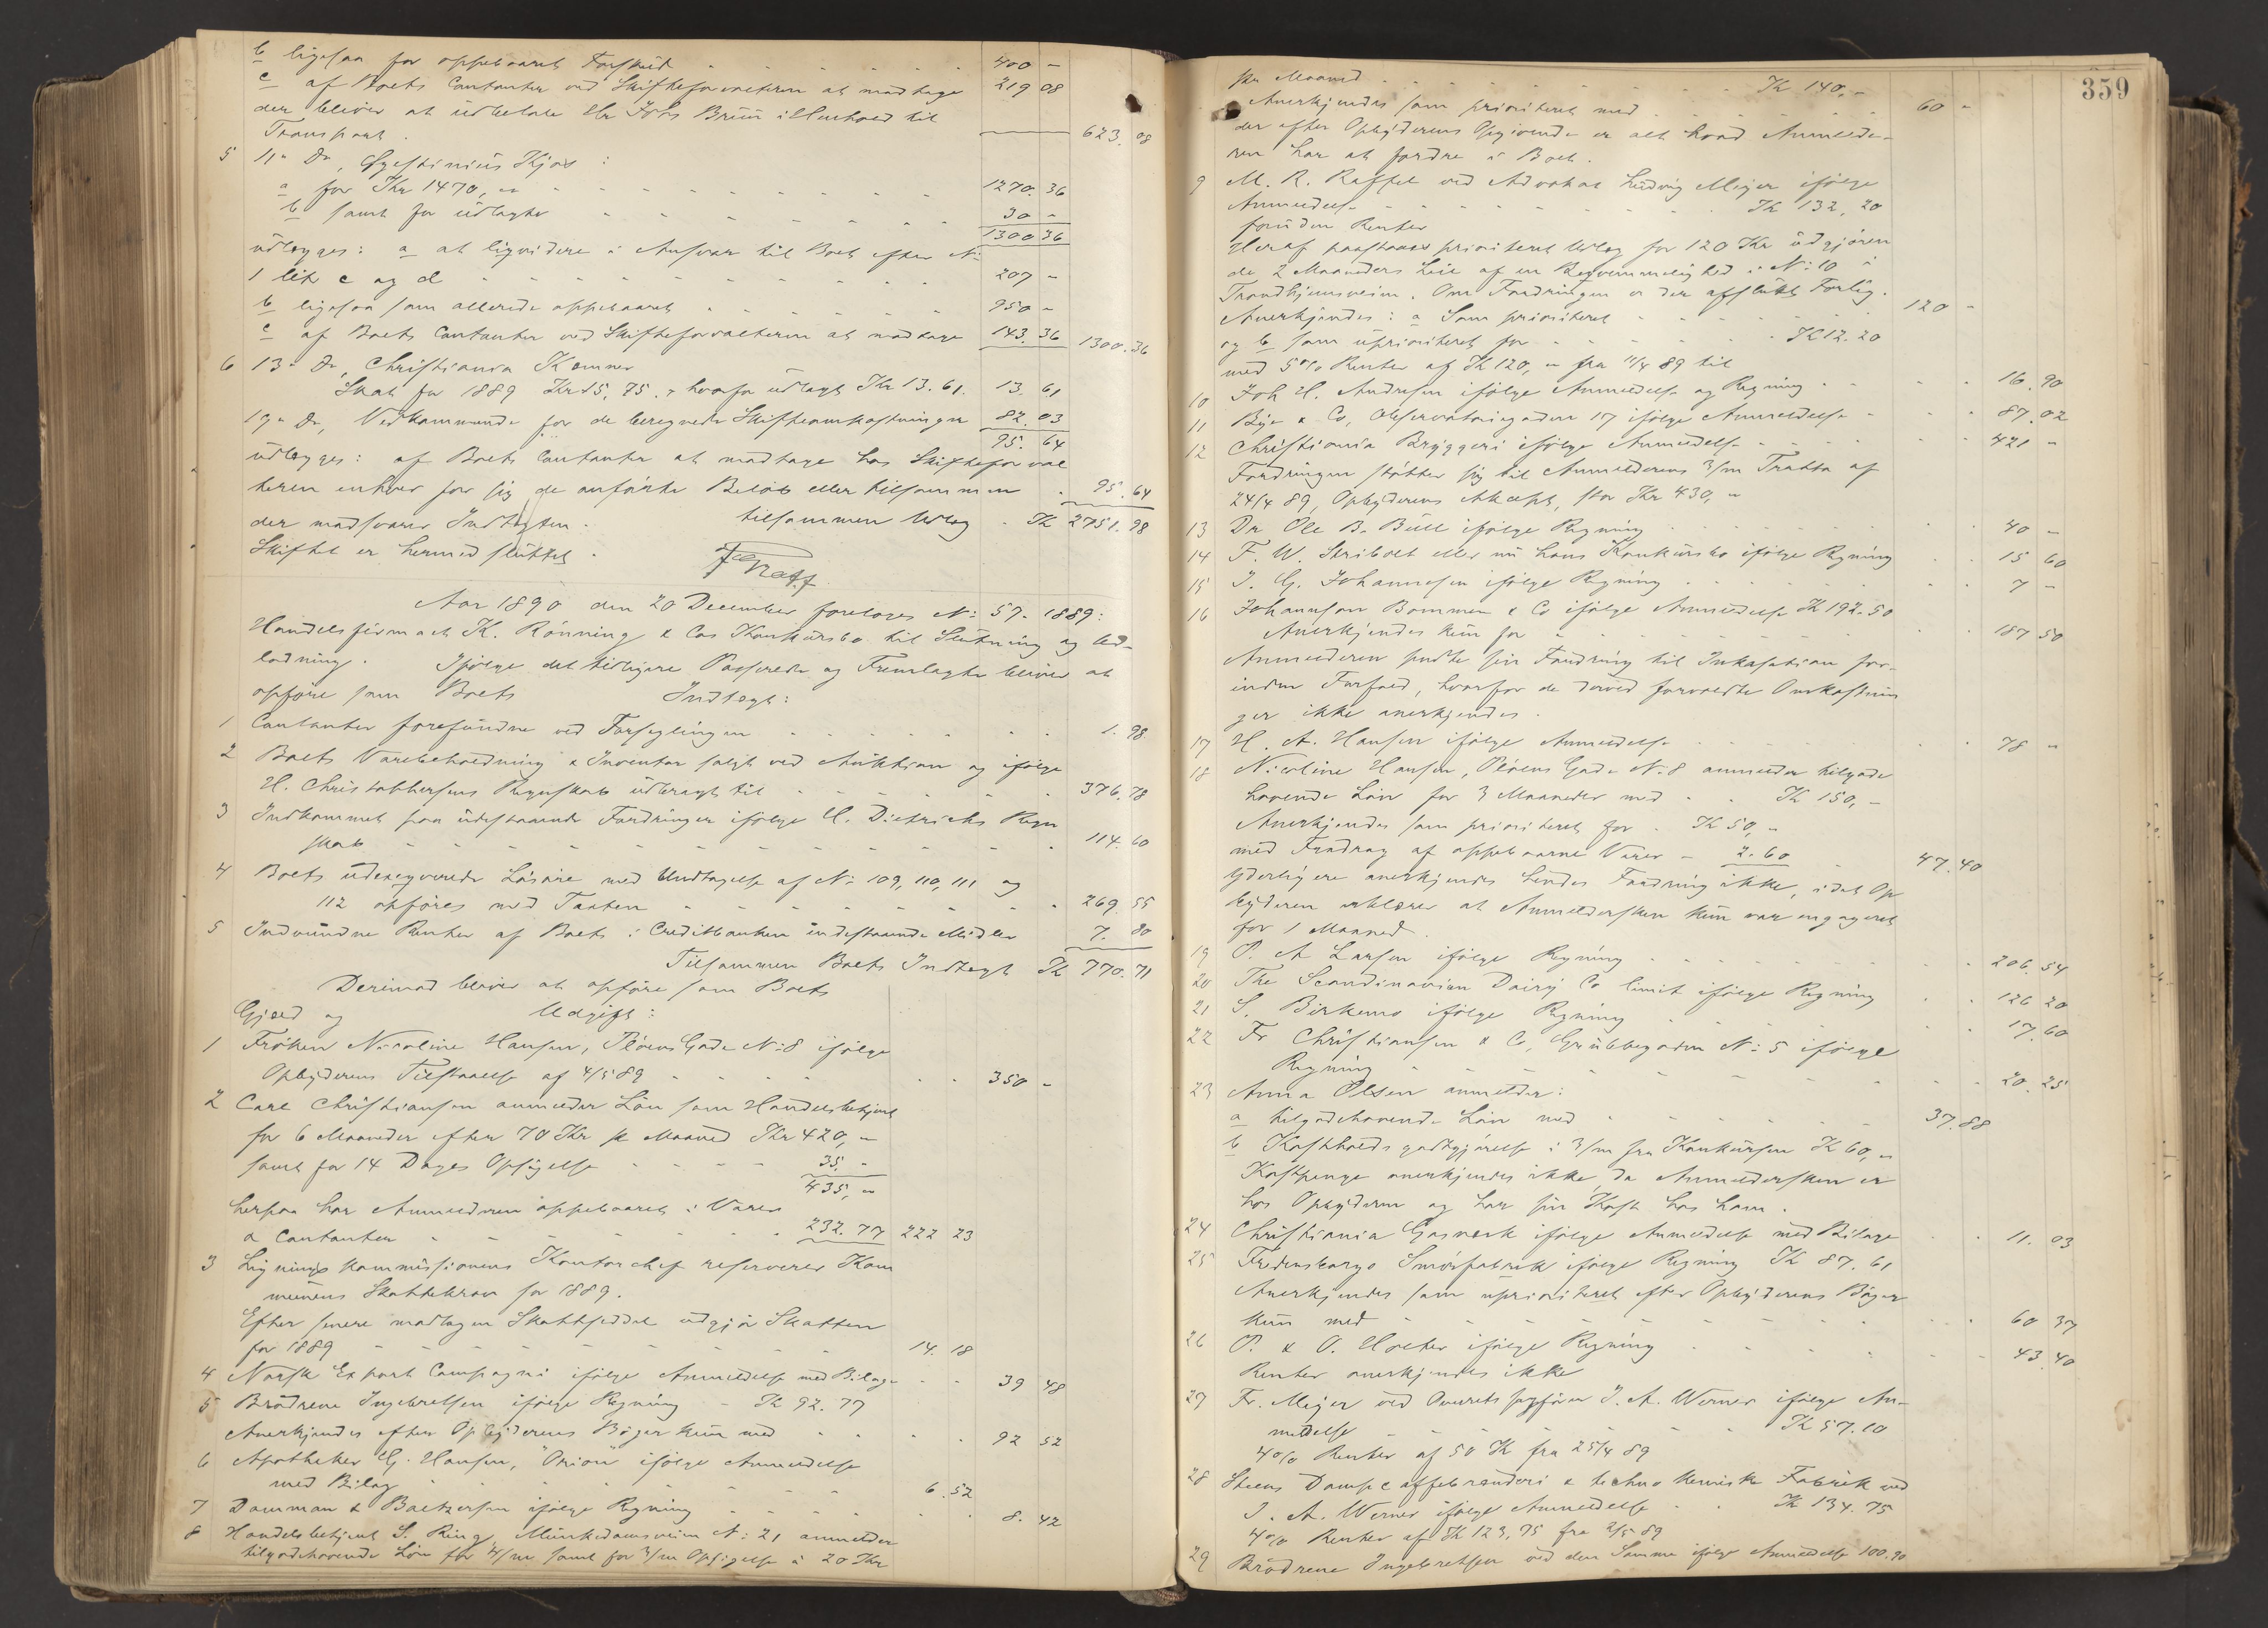 b ligesaa for oppebaaret Forskud 400 -
c af Boets Contanter ved Skifteforvalteren at modtage 219 08
der bliver at udbetale Hr Johs Bruun i Henhold til
Transport. 623. 08
5 11. Do, Gjestinius Kjos :
a for Kr 1470, - 1270. 36
b samt for udlagte 30 -
1300 36
udlægges: a at liqvidere i Ansvar til Boet efter No
1 litr c og d 207 -
b ligesaa som allerede oppebaaret 950 -
c af Boets Contanter ved Skifteforvalteren at modtage 143. 36 1300. 36
6 13. Do, Christiania Kemner
Skat for 1889 Kr 15. 75. - hvorfor udlagt Kr 13. 61. 13. 61
19. Do, Vedkommende for de beregnede Skifteomkostninger 82. 03
95. 64
udlægges: af Boets Contanter at modtage hos Skifteforval
teren enhver for sig de anførte Beløb eller tilsammen 95. 64
der modsvarer Indtægten. tilsammen Udlæg Kr 2751. 98
Skiftet er hermed sluttet.
Aar 1890 den 20 December foretoges No 57. 1889:
Handelsfirmaet K. Rönning & Cos Konkursbo til Slutning og Ud-
lodning. Ifølge det tidligere Passerede og Fremlagte bliver at
opføre som Boets Indtægt:
1 Contanter forefundne ved Forseglingen 1. 98
2 Boets Varebeholdning & Inventar solgt ved Auktion og ifølge
H. Christophersens Regnskab udbragt til 376. 78
3 Indkommet paa udestaaende Fordringer ifølge U. Dietrichs Regn
skab 114. 60
4 Boets udenværende Løsøre med Undtagelse af No 109, 110, 111 og
112 opføres med Taxten 269. 55
5 Indvundne Renter af Boets i Creditbanken indestaaende Midler 7. 80
Tilsammen Boets Indtægt Kr 770. 71
Derimod bliver at opføre som Boets
Gjæld og Udgift:
1 Frøken Nicoline Hansen, Pløens Gade No 8 ifølge
Opbyderens Tilstaaelse af 4/5 89 350 -
2 Carl Christiansen anmelder Løn som Handelsbetjent
for 6 Maaneder efter 70 Kr pr Maaned Kr 420, -
samt for 14 Dages Opsigelse 35, -
435, -
herpaa har Anmelderen oppebaaret i Varer
& Contanter 232. 77 222 23
3 Lignings Kommissionens Kontorchef reserverer Kom
munens Skattekrav for 1889.
Efter senere modtagen Skatteseddel udgjør Skatten
for 1889 14. 18
4 Norsk Export Compagni ifølge Anmeldelse med Bilage 39 48
5 Brødrene Ingebretsen ifølge Regning Kr 92. 77
Anerkjendes efter Opbyderens Bøger kun med 92 52
6 Apotheker G. Hansen, "Orion" ifølge Anmeldelse
med Bilag 6. 52
7 Damman & Baltzersen ifølge Regning 8. 42
8 Handelsbetjent S. Ring, Munkedamsveien No 21 anmelder
tilgodehavende Løn for 4/m samt for 3/m Opsigelse à 20 Kr
359
pr Maaned Kr 140, -
Anerkjendes som prioriteret med 60 -
der efter Opbyderens Opgivende er alt hvad Anmelde-
ren har at fordre i Boet.
9 M. R. Raffel ved Advokat Ludvig Meyer ifølge
Anmeldelse Kr 132, 20
foruden Renter
Heraf paastaaes prioriteret Udlæg for 120 Kr udgjøren
de 2 Maaneders Leie af en Beqvemmelighed i No 10 i
Trondhjemsveien. Om Fordringen er der afsluttet Forlig.
Anerkjendes: a Som prioriteret 120 -
og b som uprioriteret for Kr 12. 20
med 5% Renter af Kr 120, - fra 11/4 89 til
10 Joh H. Andresen ifølge Anmeldelse og Regning 16. 90
11 Bye & Co, Observatoriegaden 17 ifølge Anmeldelse 87. 02
12 Christiania Bryggeri ifølge Anmeldelse 421 -
Fordringen støtter sig til Anmelderens 3/m Tratta af
24/4 89, Opbyderens Akcept, stor Kr 430, -
13 Dr Ole B. Bull ifølge Regning 40 -
14 F. W. Skribolt eller nu hans Konkursbo ifølge Regning 15 60
15 J. G. Johannesen ifølge Regning 7 -
16 Johannson Bommen & Co ifølge Anmeldelse Kr 192. 50
Anerkjendes kun for 187 50
Anmelderen sendte sin Fordring til Inkassation for-
inden Forfald, hvorfor de derved forvoldte Omkostnin
ger ikke anerkjendes.
17 H. A. Hansen ifølge Anmeldelse 78 -
18 Nicoline Hansen, Pløens Gade No 8 anmelder tilgode
havende Løn for 3 Maaneder med Kr 150, -
Anerkjendes som prioriteret for Kr 50, -
med Fradrag af oppebaarne Varer - 2. 60 47. 40
Yderligere anerkjendes hendes Fordring ikke, idet Op
byderen erklærer at Anmeldersken kun var engageret
for 1 Maaned.
19 O. A Larsen ifølge Regning 206. 54
20 The Scandinavian Dairy Co limit ifølge Regning 126 20
21 S. Birkemo ifølge Regning 17. 60
22 Fr Christiansen & Co, Grubbegaden No 5 ifølge
Regning 20. 25
23 Anna Olsen anmelder:
a tilgodehavende Løn med 37. 88
b Kostholdsgodtgjørelse i 3/m fra Konkursen Kr 60, -
Kostpenge anerkjendes ikke, da Anmeldersken er
hos Opbyderen og har sin Kost hos ham.
24 Christiania Gasværk ifølge Anmeldelse med Bilage 11. 03
25 Fredensborgs Smørfabrik ifølge Regning Kr 87. 61
Anerkjendes som uprioriteret efter Opbyderens Bøger
kun med 60 37
26 O. & O. Holter ifølge Regning 43. 40
Renter anerkjendes ikke
27 Fr. Meyer ved Overretssagfører J. A. Werner ifølge An-
meldelse Kr 57. 10
4% Renter af 50 Kr fra 25/4 89
28 Steens Dampcaffebrænderi & techno kemiske Fabrik ved
J. A. Werner ifølge Anmeldelse Kr 134. 75
4% Renter af Kr 123, 75 fra 2/5 89
29 Brødrene Ingebretsen ved den Samme ifølge Anmeldelse 100. 90